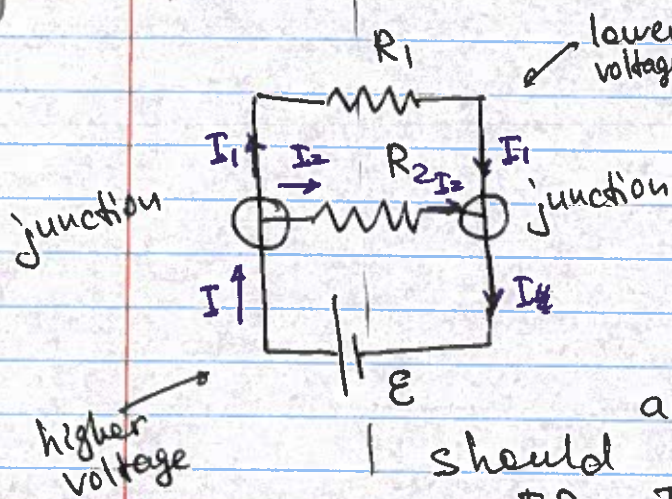 lower
voltage
R1
I1
I2
R2
I2
I1
junction
junction
I
I
ε
higher
voltage
a
should